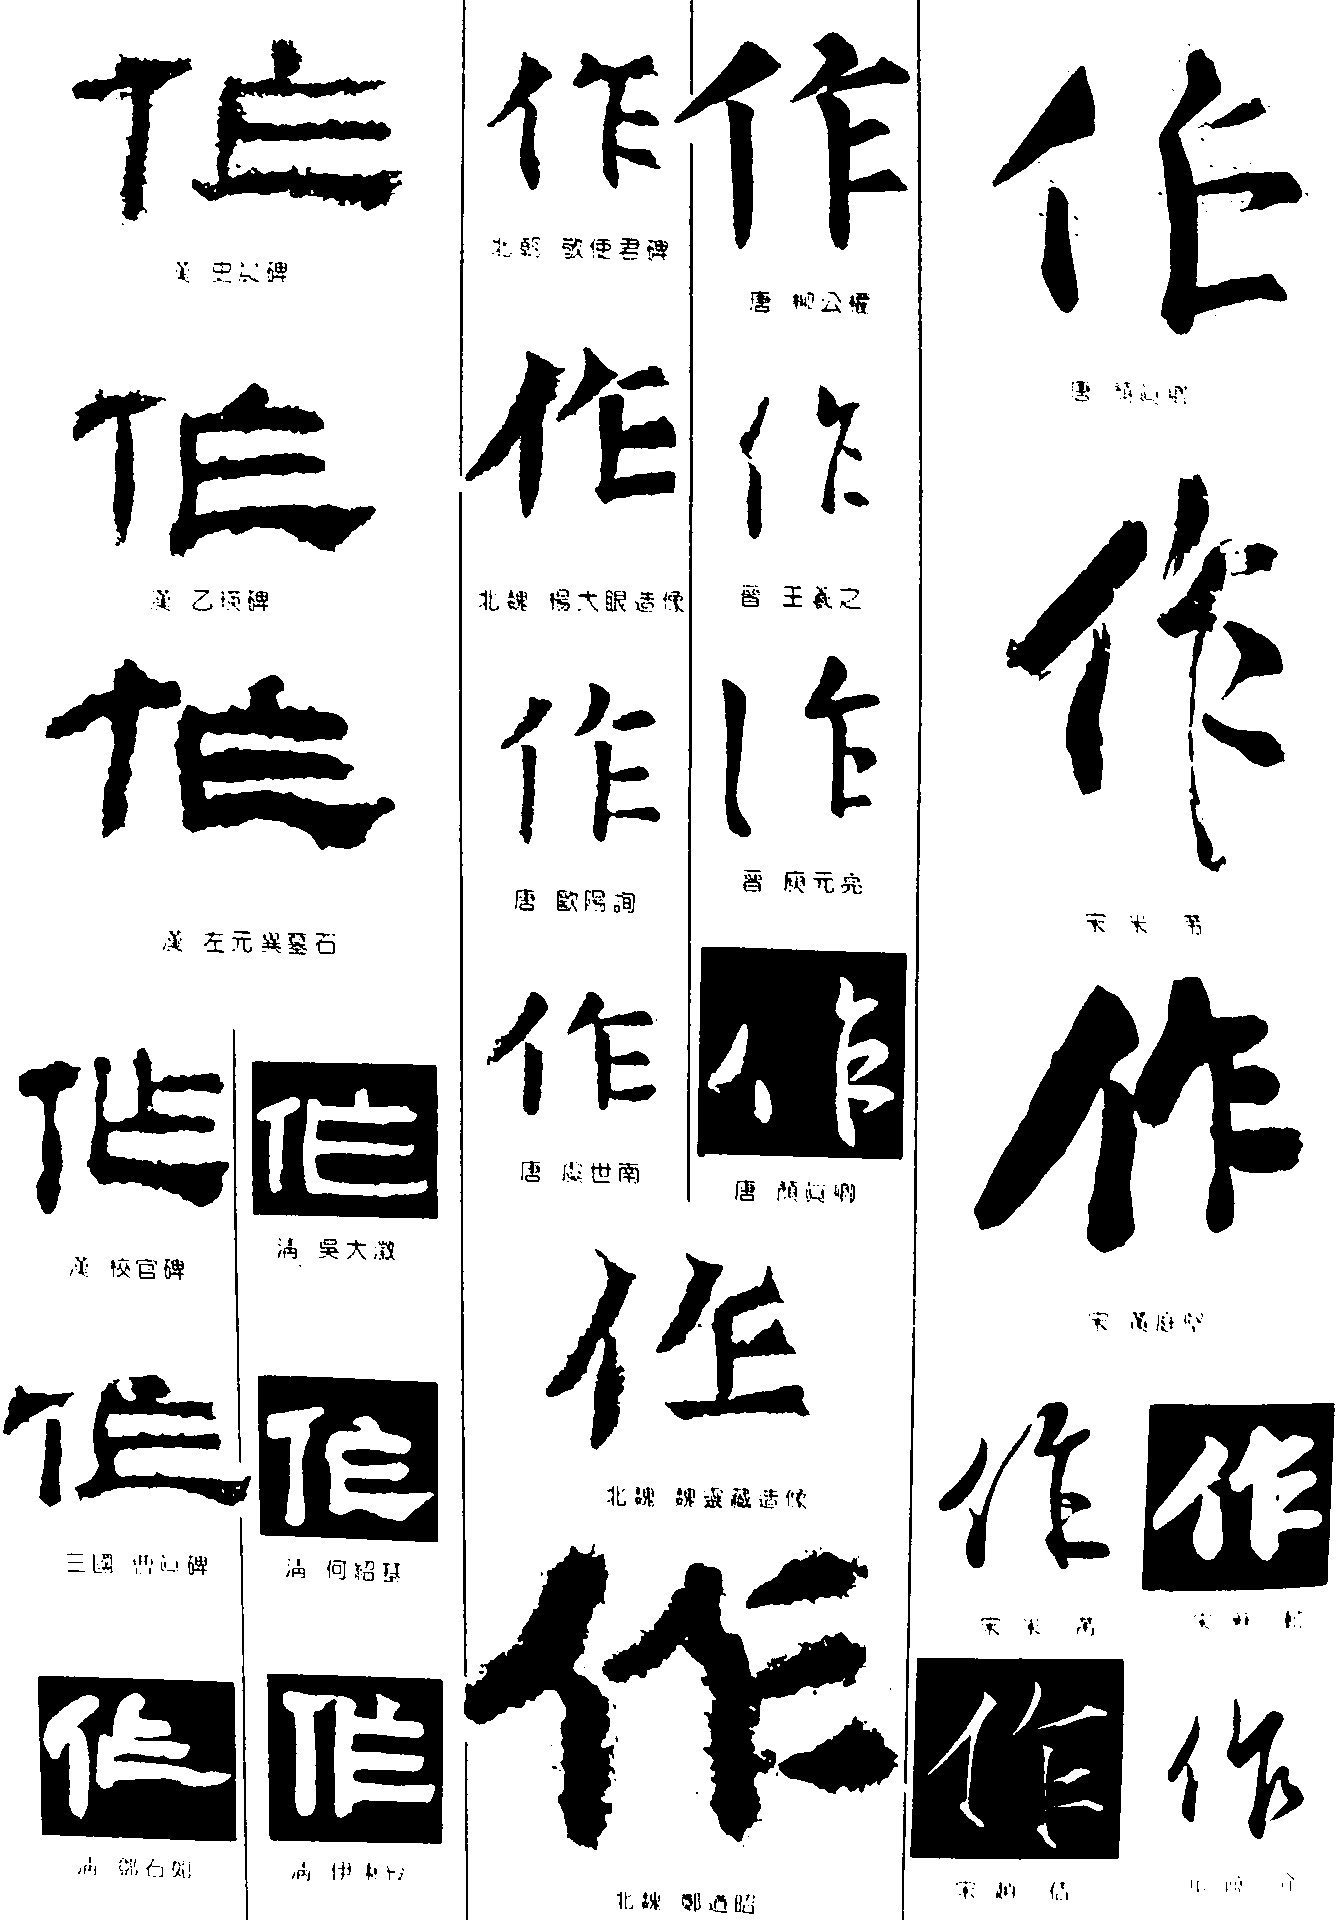 作
漢 史晨碑
作
漢 乙瑛碑
作
漢 左元異墓石
作
漢 校官碑
作
三國 曹真碑
作
清 鄧石如
作
清 吳大澂
作
清 何紹基
作
清 伊秉綬
作
北朝 敬使君碑
作
北魏 楊大眼造像
作
唐 歐陽詢
作
唐 虞世南
作
唐 柳公權
作
晉 王羲之
作
晉 庾元亮
作
唐 顏真卿
作
北魏 魏靈藏造像
作
北魏 鄭道昭
作
唐 顏真卿
作
宋 米 芾
作
宋 黃庭堅
作
宋 米 芾
作
宋 蘇 軾
作
宋 趙 佶
作